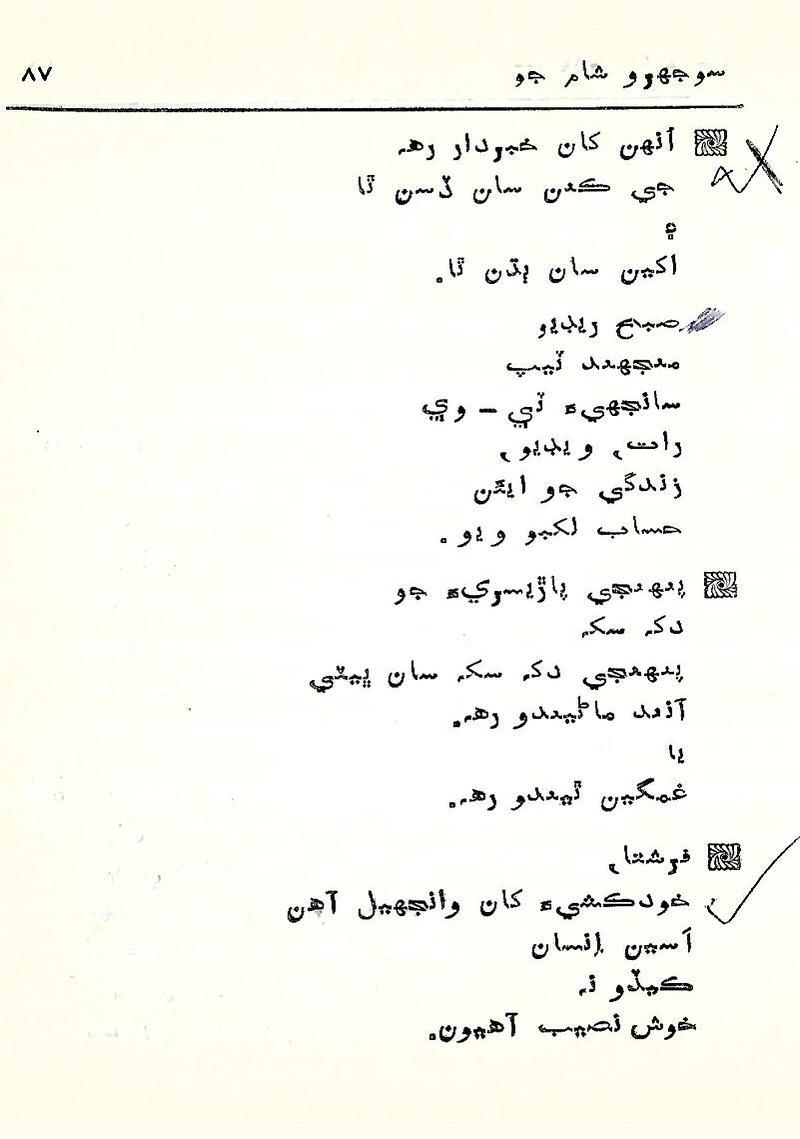 سوجهرو شام جو
٨٧
اُنهن کان خبردار رهہ
جي ڪنن سان ڏسن ٿا
۽
اکين سان ٻڌن ٿا.
صبح ريڊيو
منجهند ٽيپ
سانجهيءَ ٽي – وي
رات، ويڊيو،
زندگي جو ائين
حساب لکبو ويو.
پنهنجي پاڙيسريءَ جو
دک سک
پنهنجي دک سک سان ڀيٽي
آنند ماڻيندو رهہ.
يا
غمگين ٿيندو رهہ.
فرشتا،
خودڪشيءَ کان وانجهيل آهن
اَسين اِنسان
ڪيڏو نہ
خوش نصيب آهيون.